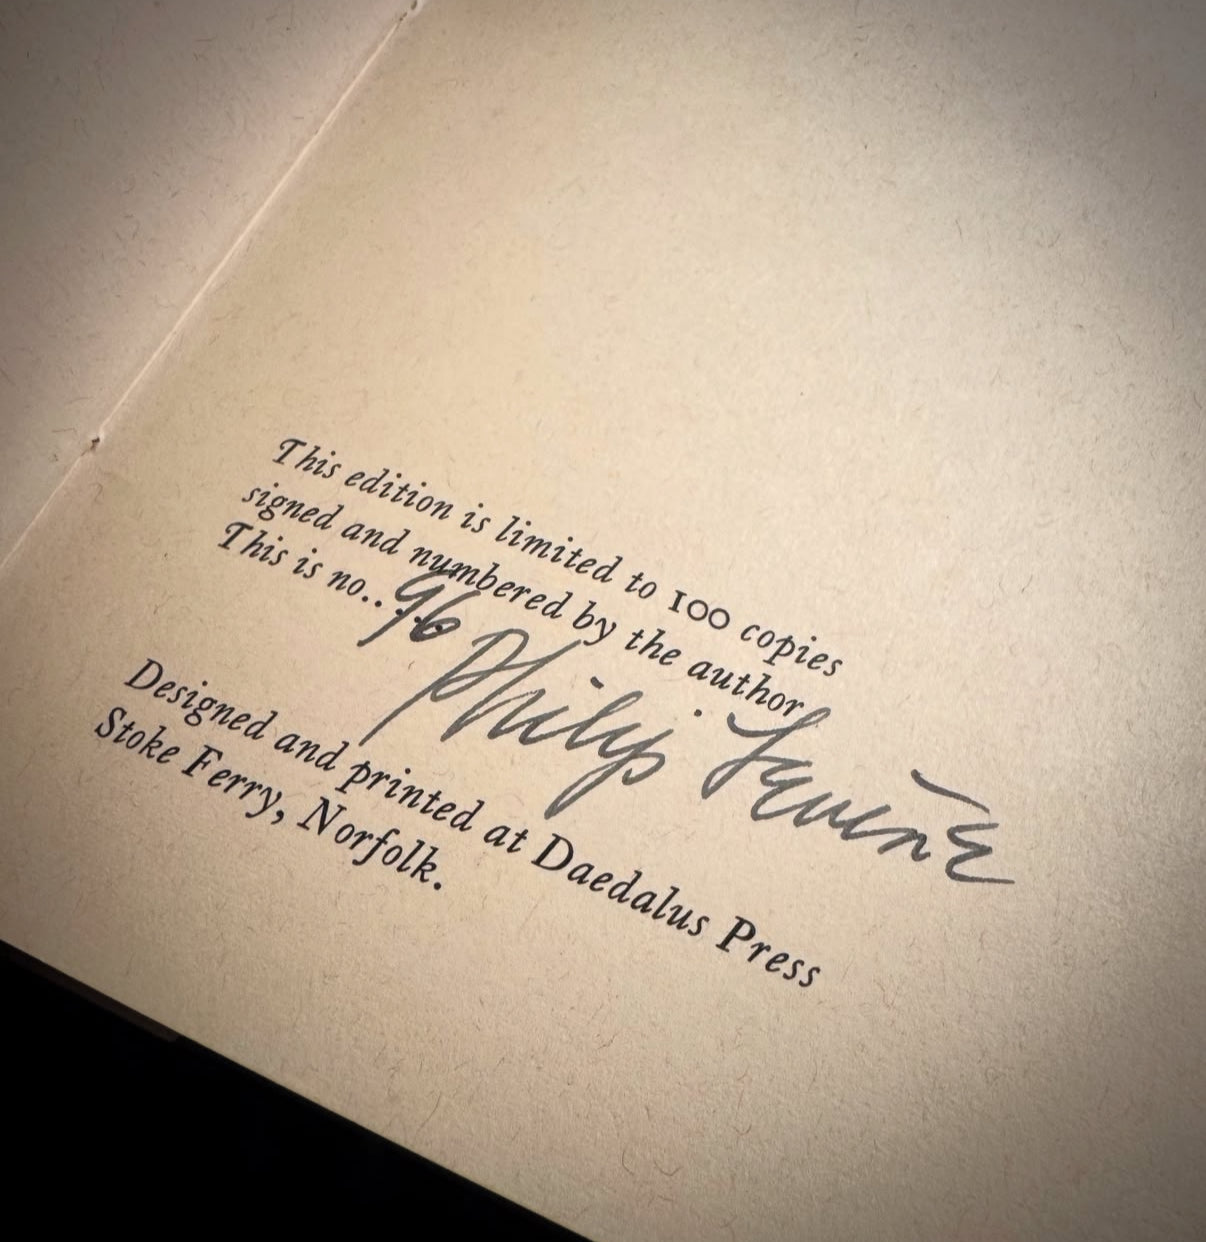 This edition is limited to 100 copies
signed and numbered by the author
This is no.... 96
Philip Levine
Designed and printed at Daedalus Press
Stoke Ferry, Norfolk.